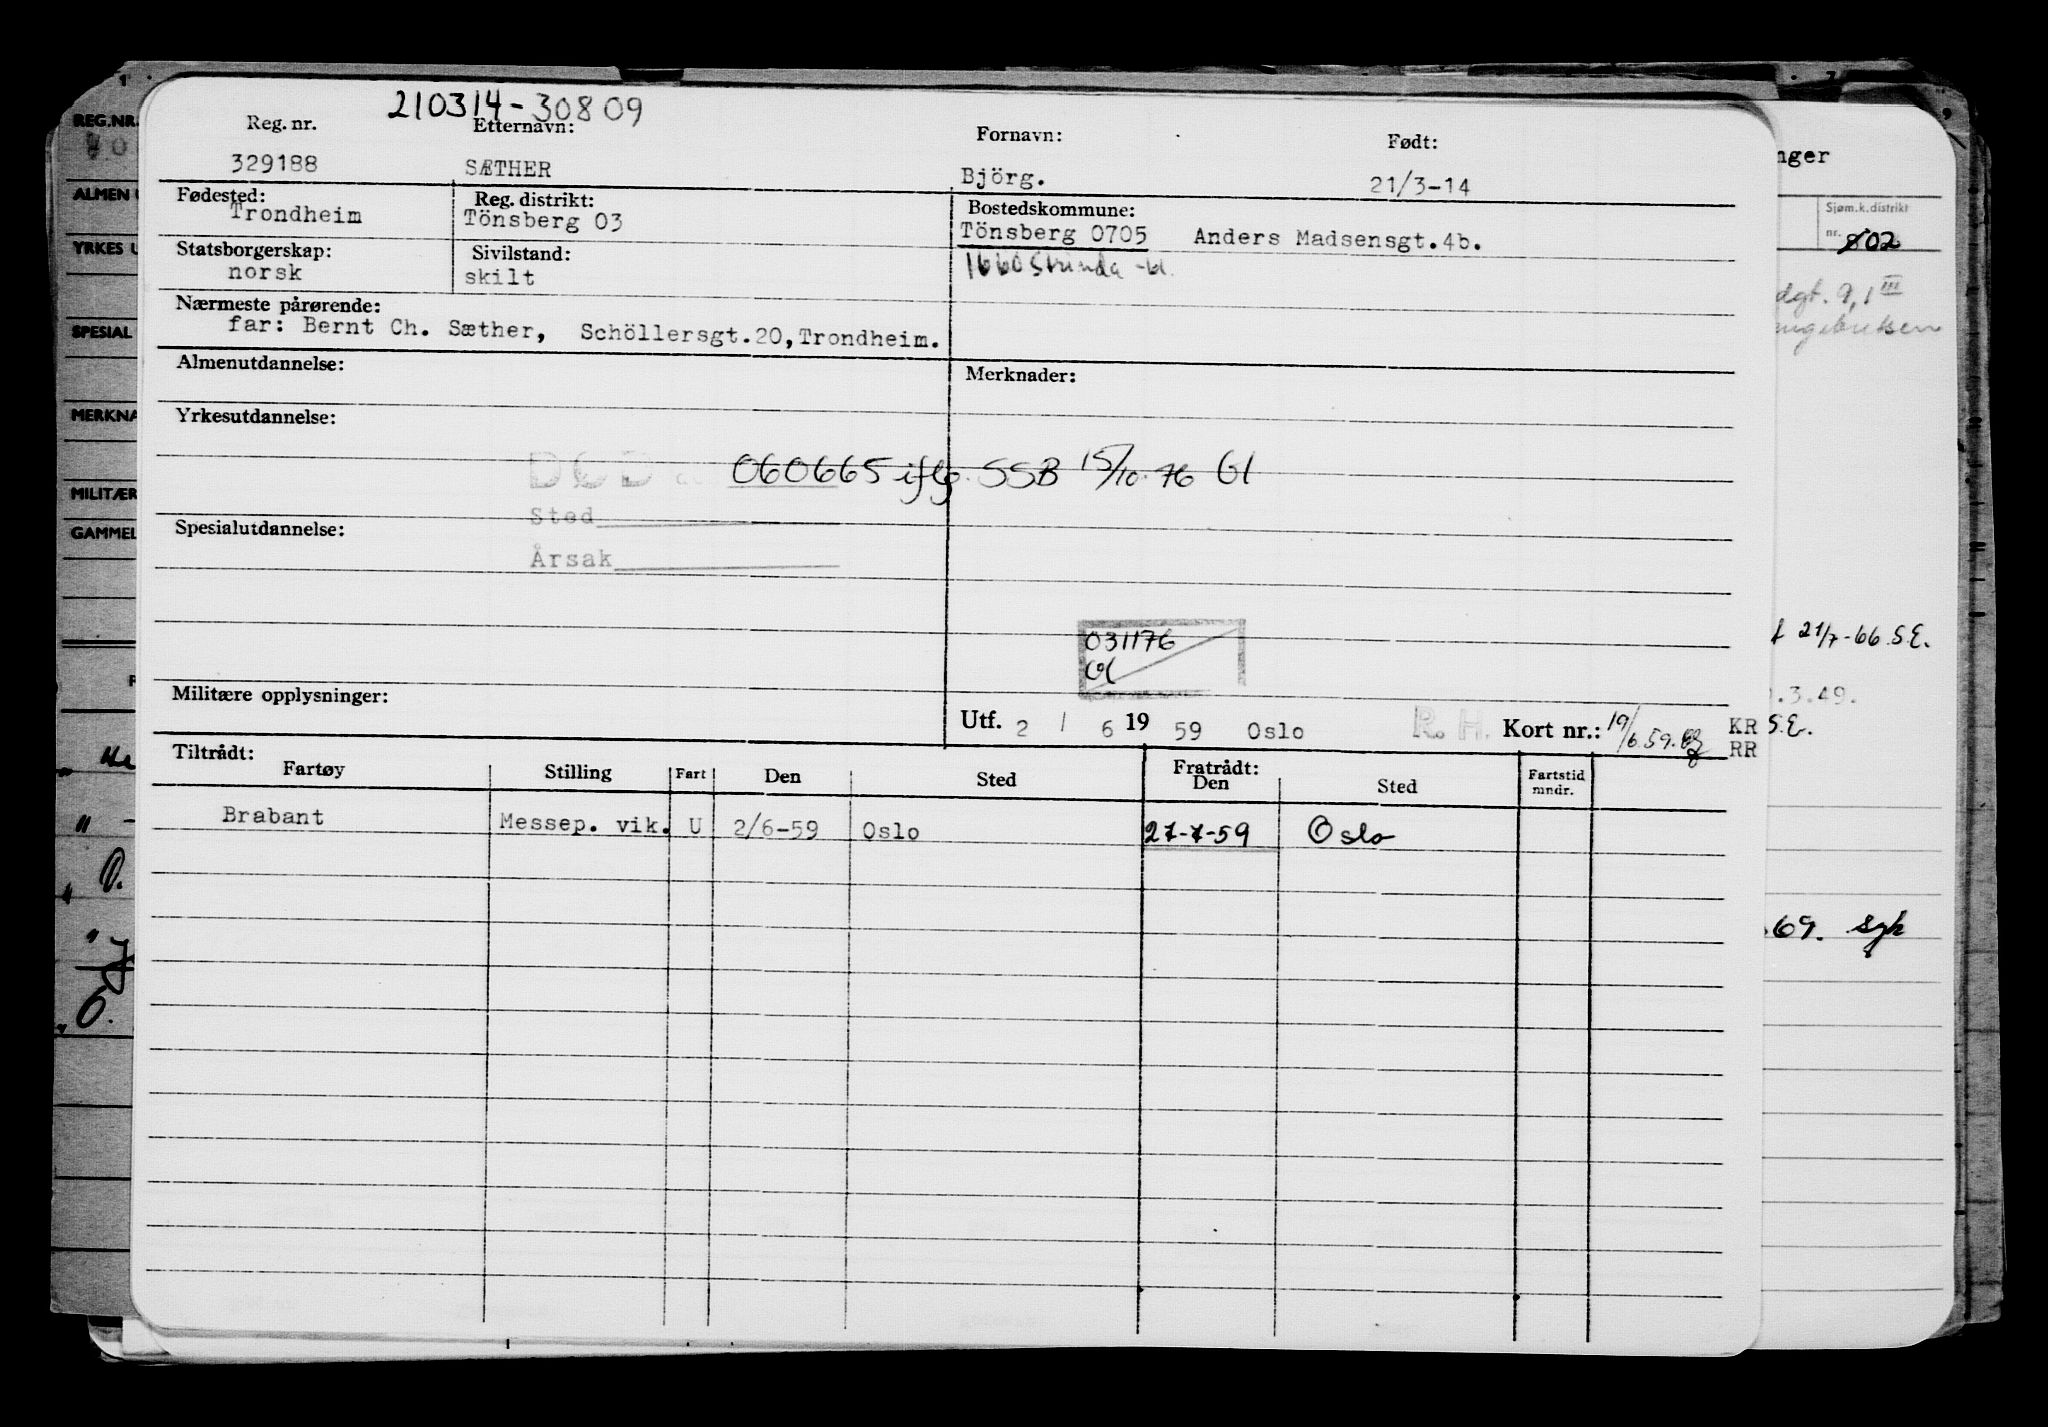 210314-30809
Reg. nr. Etternavn: Fornavn: Født:
329188 SÆTHER Björg. 21/3-14
Fødested: Reg. distrikt: Bostedskommune:
Trondheim Tönsberg 03 Tönsberg 0705 Anders Madsensgt.4b.
Statsborgerskap: Sivilstand:
norsk skilt 1660 Strinda
Nærmeste pårørende:
far: Bernt Ch. Sæther, Schöllersgt.20,Trondheim.
Almenutdannelse: Merknader:
Yrkesutdannelse:
DØD 060665 iflg. SSB 15/10-76 Gl
Sted
Spesialutdannelse:
Årsak
031176
Gl
Militære opplysninger:
Utf. 2 / 6 19 59 Oslo R.H. Kort nr.: 19/6.59. KR
RR
Tiltrådt: Fratrådt:
Fartøy Stilling Fart Den Sted Den Sted Fartstid mndr.
Brabant Messep. vik. U 2/6-59 Oslo 27-7-59 Oslo
REG.NR.
ALMEN
YRKES
SPESIAL
MERKNA
MILITÆR
GAMMEL
nger
Sjøm.k.distrikt
nr. 802
dgt. 9, I III
21/7-66 S.E.
.3.49.
S.E.
69. Sgh